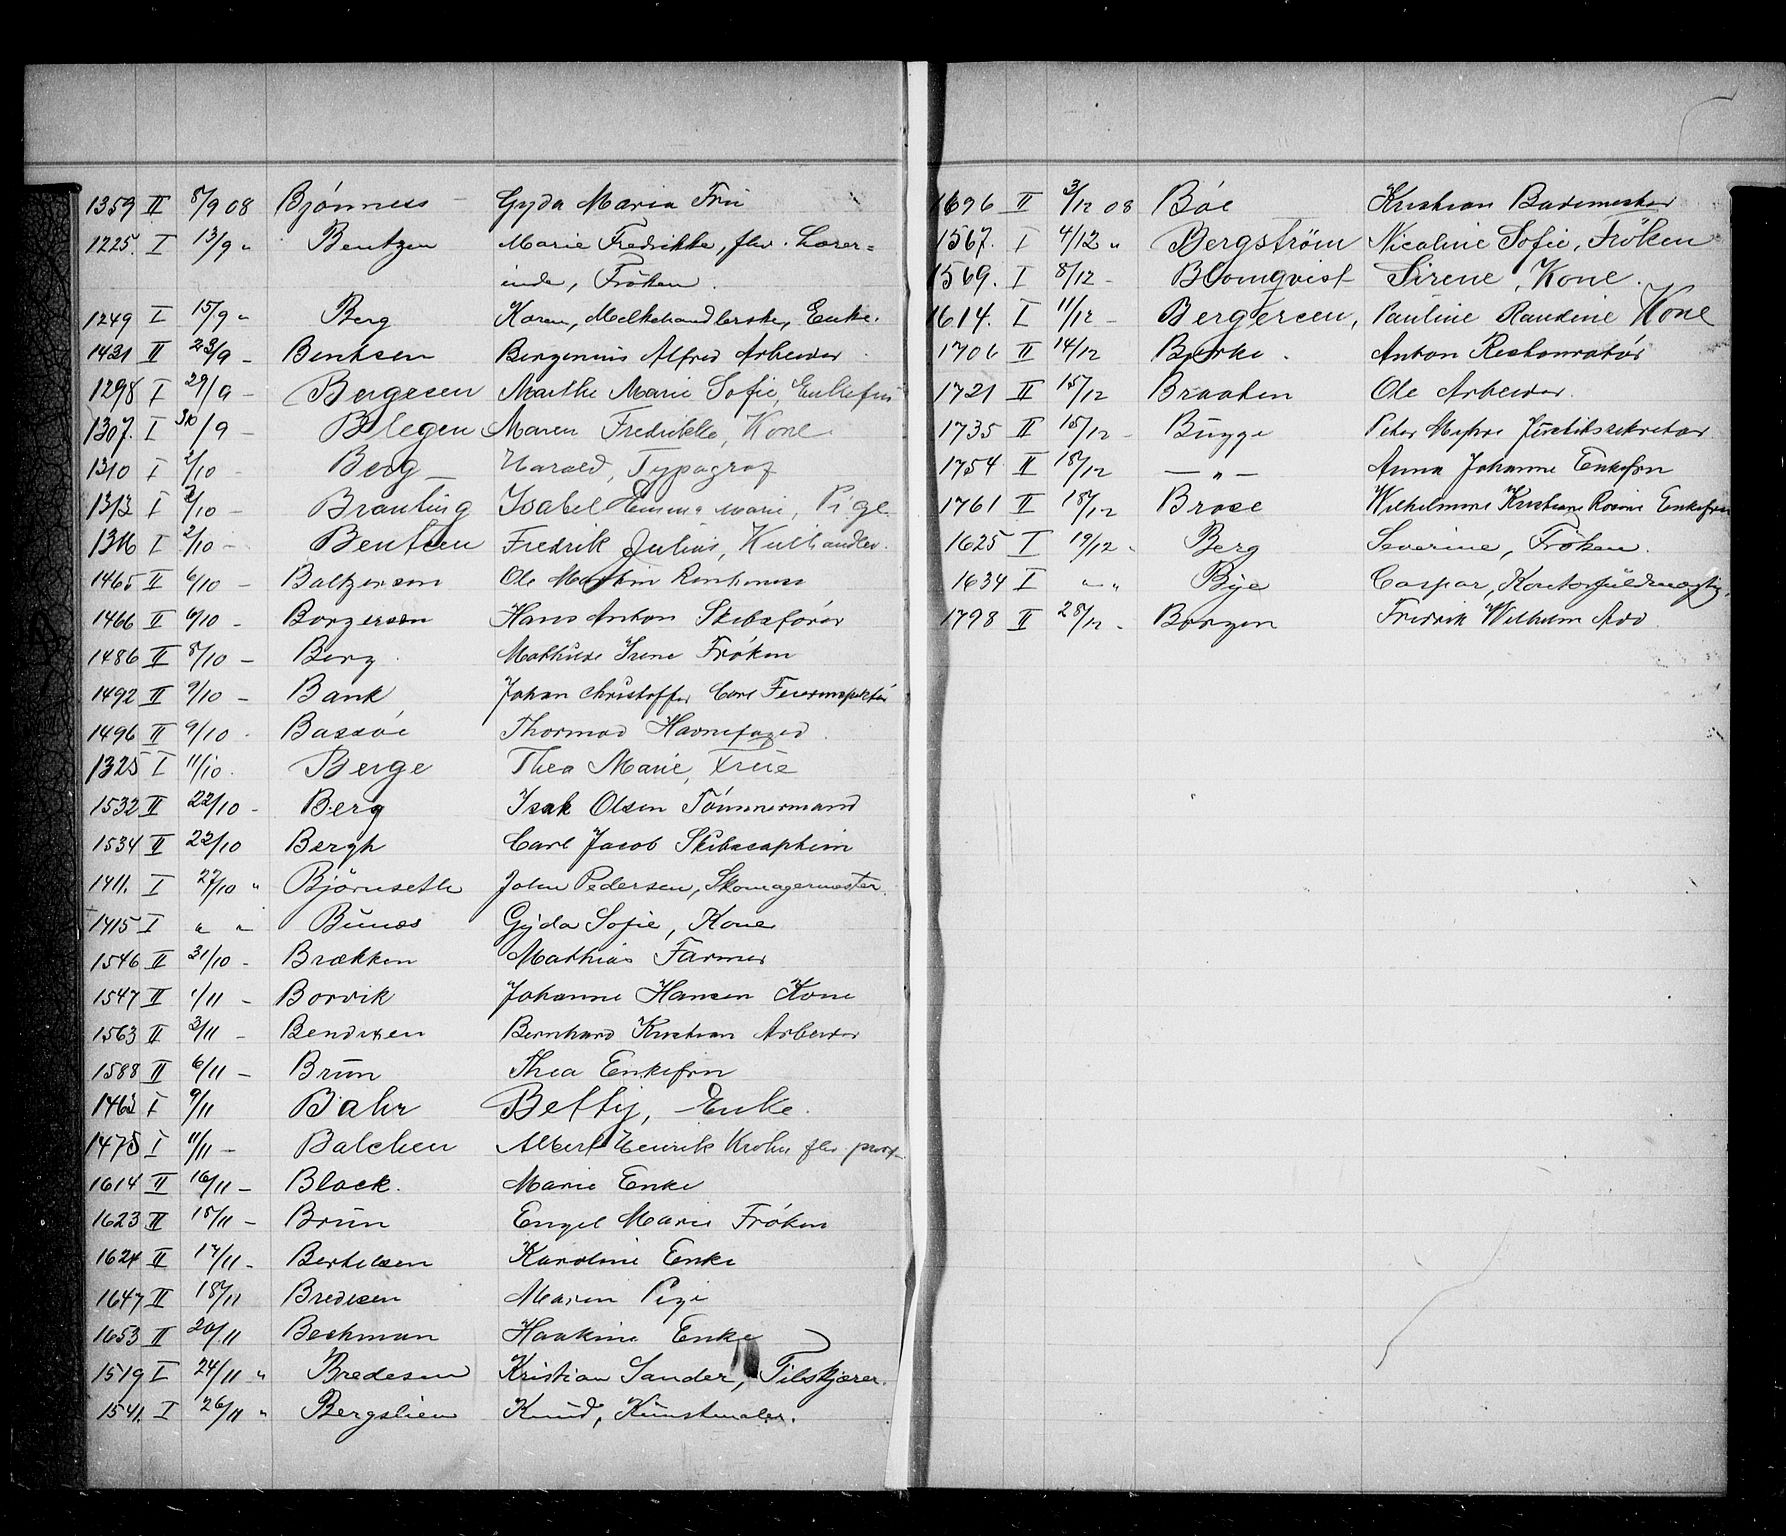 1359 II 8/9 08 Bjönness - Gyda Maria Fru
1225. I 13/9 „ Bentzen Marie Fredrikke, flev. Lærer=
inde, Frøken.
1249 I 15/9 „ Berg Karen, Melkehandlerske, Enke.
1431 II 23/9 - Bentsen Bergenius Alfred Arbeider
1298 I 29/9 - Bergesen Marthe Marie Sofie, Enkefru
1307. I 30/9 - Blegen Maren Fredrikke, Kone
1310 I 2/10 - Berg Harald, Typograf
1313 I 2/10 - Branting Isabel Emma Marie, Pige
1316 I 2/10 - Bentsen Fredrik Julius, Kulhandler.
1465 II 6/10 - Baltzersen Ole Martin
1466 II 6/10 - Borgersen Hans Anton Skibsförer
1486 II 8/10 - Berg. Mathilde Irene Frøken
1492 II 9/10 - Bank Johan Christoffer Carl Feierinspektör
1496 II 9/10 - Bassöe Thormod Havnefoged.
1325 I 11/10. Berge Thea Marie, Frue
1532 II 22/10 - Berg Isak Olsen Tömmermand
1534 II 22/10 Bergh Carl Jacob Skibscaptein
1411. I 27/10 „ Björnseth John Pedersen, Skomagermester.
1415 I „ „ Bunæs Gyda Sofie, Kone
1546 II 31/10 - Brækken Mathias Farmer
1547 II 1/11 - Borvik Johanne Hansen Kone
1563 II 3/11 - Bendixen Bernhard Kristian Arbeider
1588 II 6/11 - Brun Thea Enkefru
1462 I 9/11 Bahr Betty, Enke.
1475 I 11/11 - Balchen Albert Henrik Krohn flv
1614 II 16/11 - Block. Marie Enke
1623 II 15/11 - Brun Engel Marie Frøken
1624 II 17/11 - Bertelsen Karoline Enke
1647 II 18/11 Bredesen Maren Pige
1653 II 20/11 Beckman Haakine Enke
1519 I 24/11 „ Bredesen Kristian Sander, Tilskjærer.
1541. I 26/11 „ Bergslien Knud, Kunstmaler.
1696 II 3/12 08 Böe Kristian Bademester
1567. I 4/12 „ Bergström Nicoline Sofie, Fröken
1569. I 8/12 - Blomqvist Sirene, Kone.
1614. I 11/12 - Bergersen, Pauline Randine Kone
1706 II 14/12 Bjerke. Anton Restauratör
1721 II 15/12 Braaten Ole Arbeider.
1735 II 15/12 - Bugge Peter Justitssekretær
1754 II 18/12 — „ — Anna Johanne Enkefru
1761 II 18/12 Brose Wilhelmine Kristiane Rosine Enkefru
1625 I 19/12 „ Berg Severine, Frøken.
1634 I — „ Bye Caspar, Kontorfuldmægtig.
1798 II 28/12 - Borgen Fredrik Wilhelm Adv.